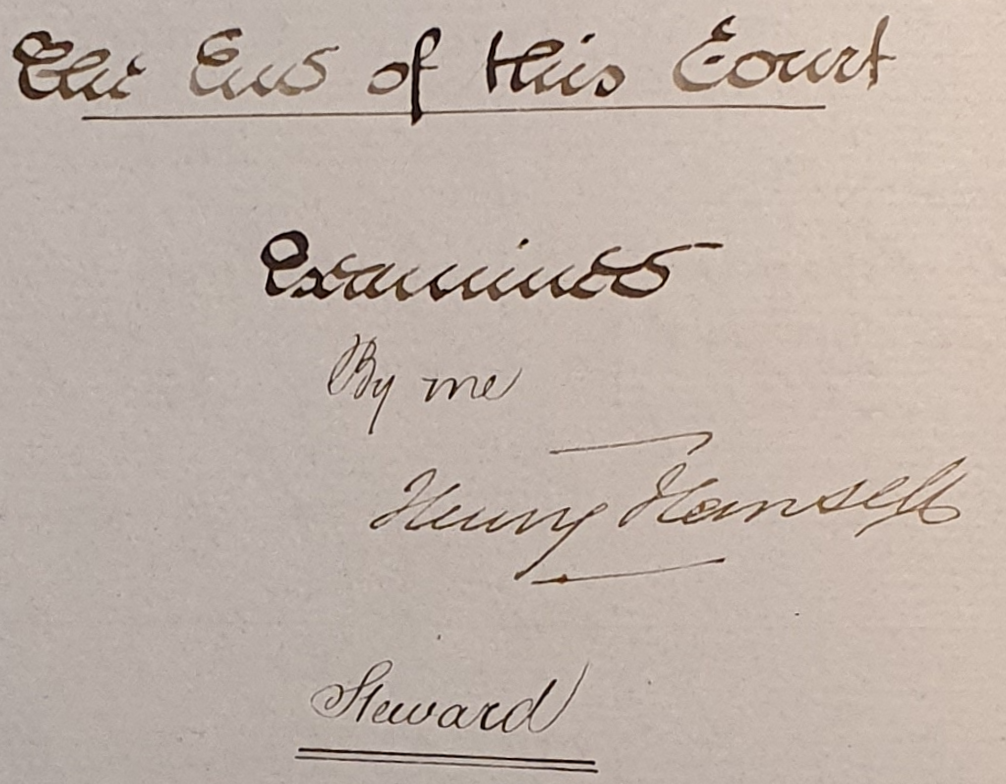 The End of this Court
Examined
By me
Henry Hansell
Steward